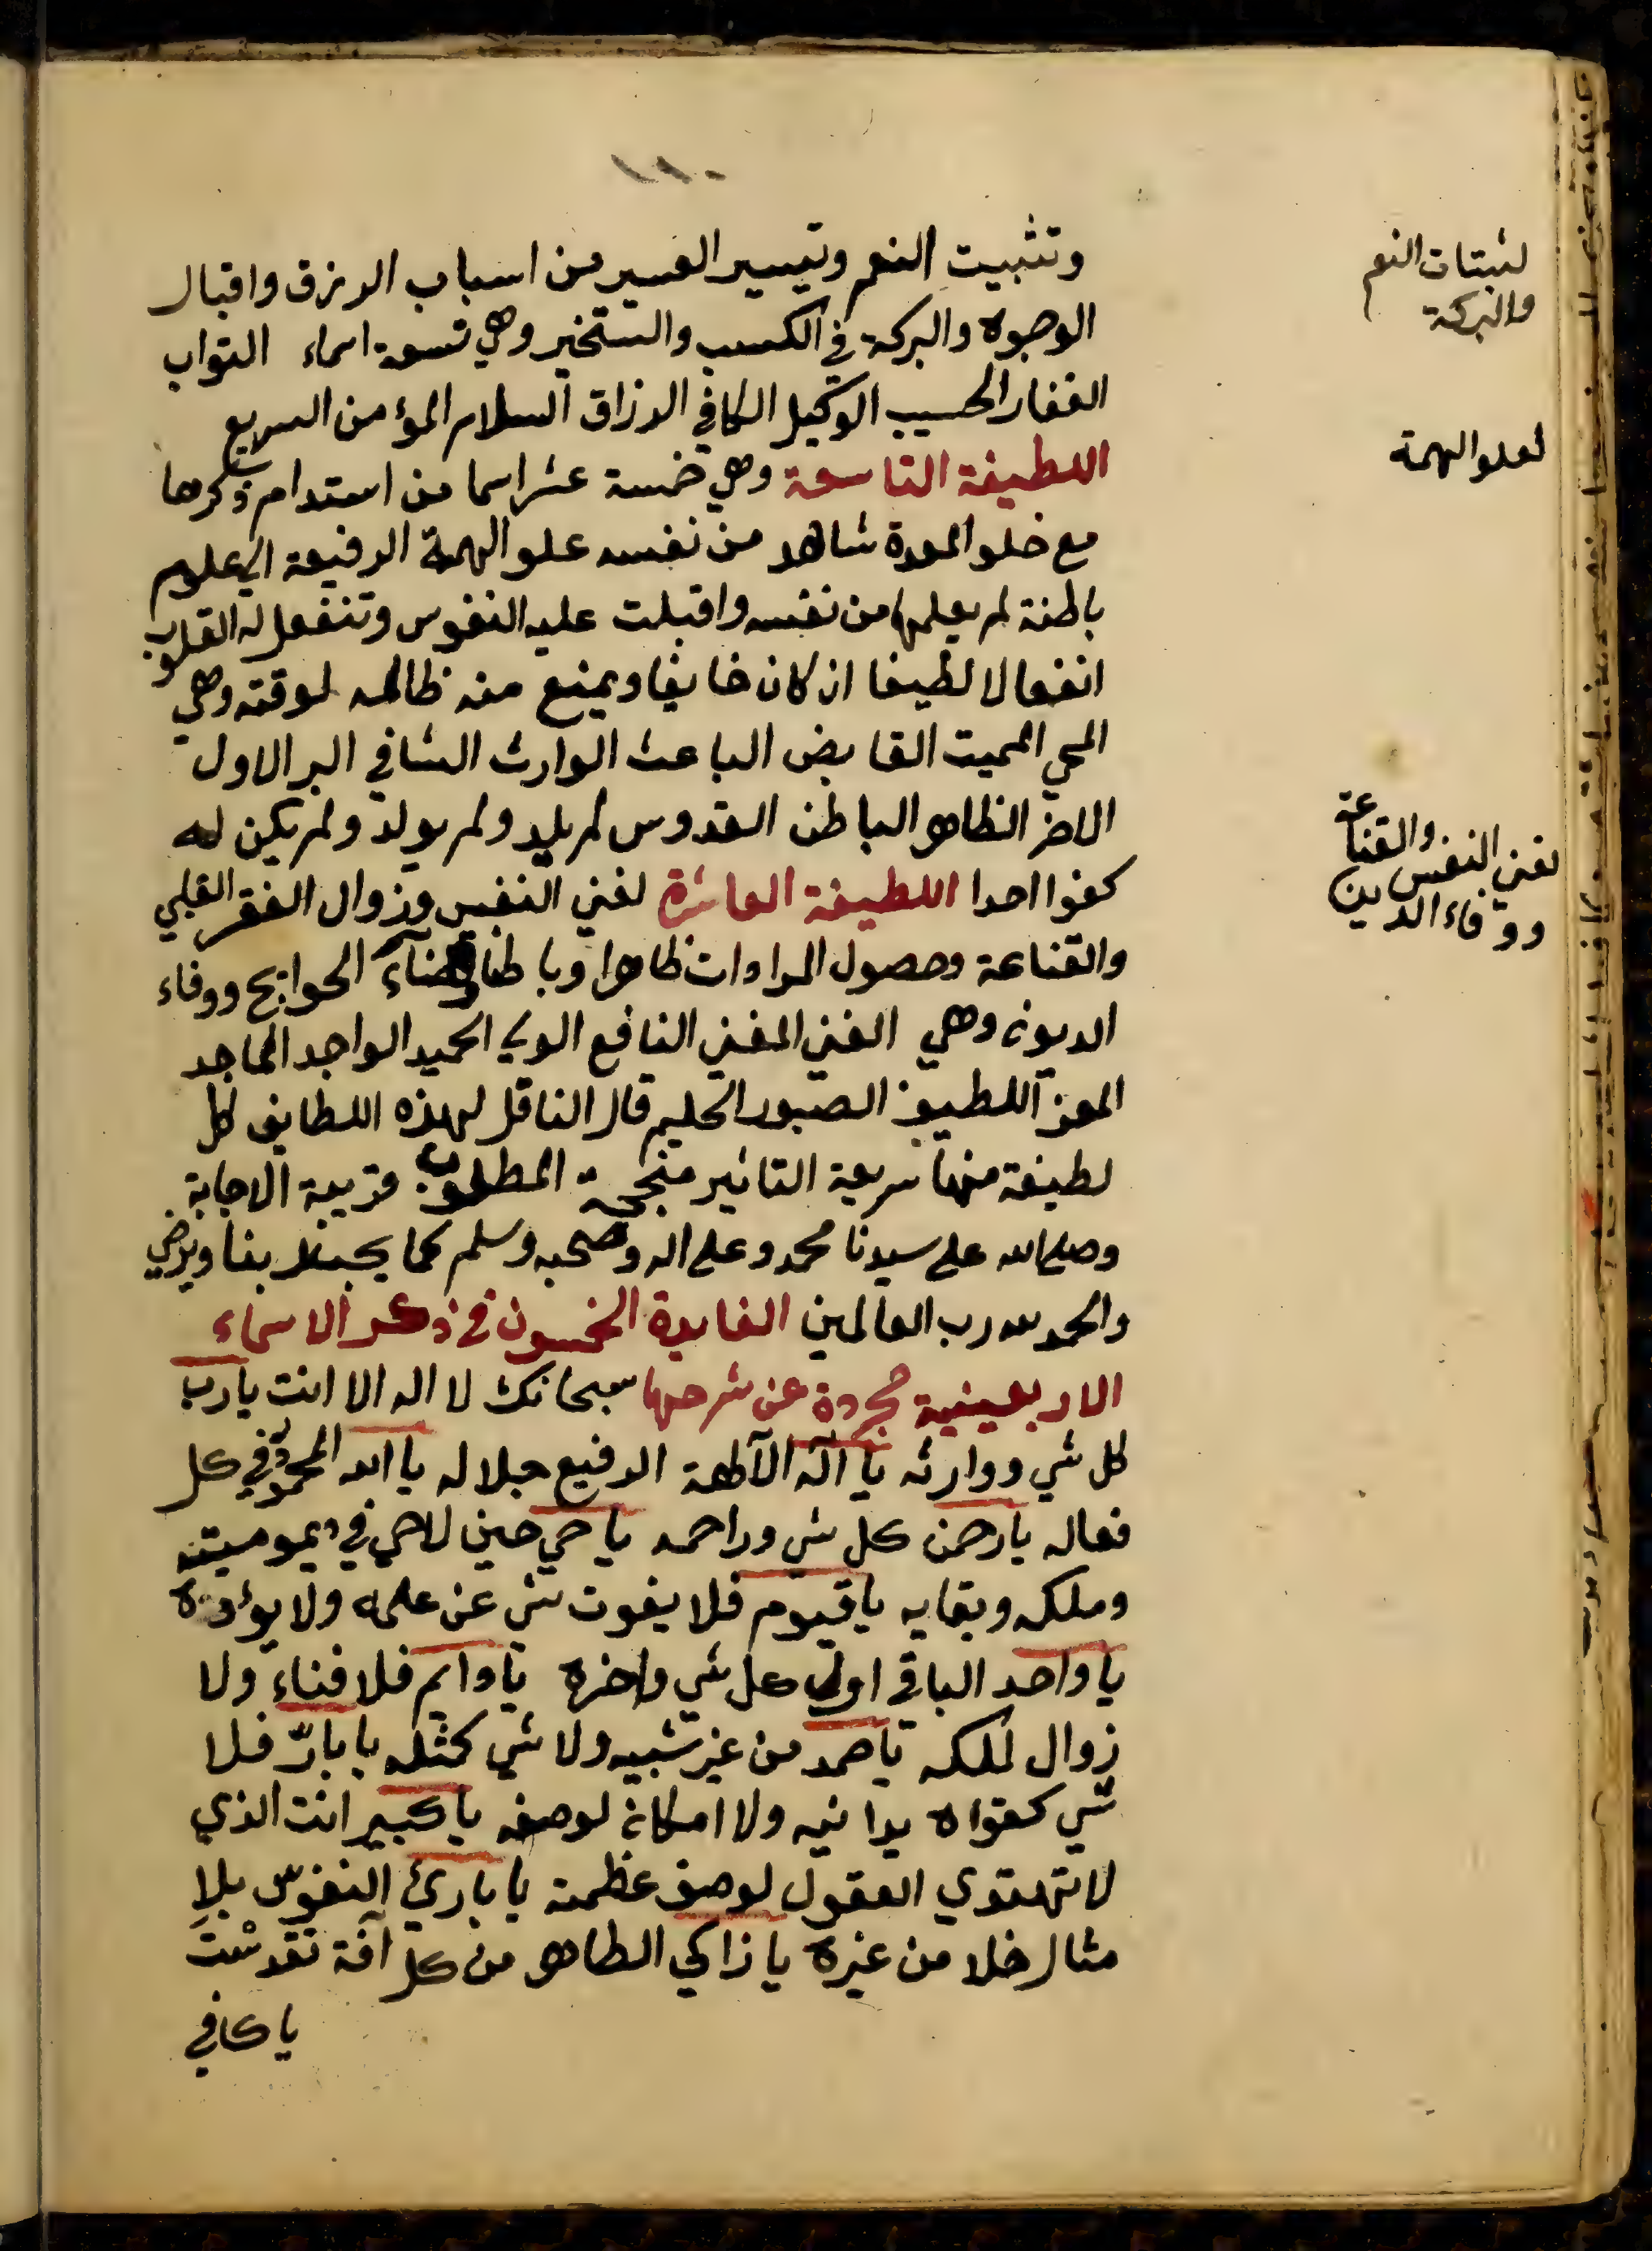 ١١٠
وتثبيت النعم وتيسير العسير من اسباب الرزق واقبال
الوجوه والبركة في الكسب والتسخير وهي تسعة اسماء التواب
الغفار الحسيب الوكيل الكافي الرزاق السلام المؤمن السريع
اللطيفة التاسعة وهي خمسة عشر اسما من استدام ذكرها
مع خلو المعدة شاهد من نفسه علو الهمة الرفيعة الى علوم
باطنة لم يعلمها من نفسه واقبلت عليه النفوس وتنفعل له القلوب
انفعالا لطيفا ان كان خايفا ويمنع منه ظالمه لوقته وهي
المحي المميت القابض الباعث الوارث الشافي البر الاول
الاخر الظاهر الباطن القدوس لم يلد ولم يولد ولم يكن له
كفوا احدا اللطيفة العاشرة لغني النفس وزوال الفقر القلبي
والقناعة وحصول المرادات ظاهرا وباطنا وقضآء الحوايج ووفاء
الديون وهي الغني المغني النافع الولي الحميد الواجد الماجد
المعز اللطيف الصبور الحليم قال الناقل لهذه اللطايف كل
لطيفة منها سريعة التاثير منجحة المطلوب قريبة الاجابة
وصلى الله على سيدنا محمد وعلى اله وصحبه وسلم كما يحب ربنا ويرضي
والحمد لله رب العالمين الفايدة الخمسون في ذكر الاسماء
الاربعينية مجردة عن شرحها سبحانك لا اله الا انت يارب
كل شي ووارثه يا آله الآلهة الرفيع جلاله يا الله المحمود في كل
فعاله يارحمن كل شي وراحمه يا حي حين لا حي في ديمومية
وملكه وبقايه ياقيوم فلا يفوت شي عن علمه ولا يؤده
يا واحد الباقي اول كل شي واخره يا دايم فلا فناء ولا
زوال لملكه ياصمد من غير شبيه ولا شي كمثله يا بارّ فلا
شي كفواه يدانيه ولا امكان لوصفه يا كبير انت الذي
لا تهتدي العقول لوصف عظمته يا بارئ النفوس بلا
مثال خلا من غيره يا زاكي الطاهر من كل آفة تقدست
يا كافي
لثبتات النعم
والبركة
لعلو الهمة
لغني النفس والقناعة
ووفاء الدين